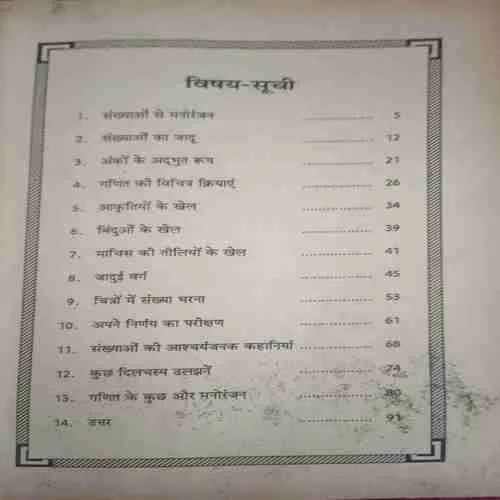 विषय-सूची
1. संख्याओं से मनोरंजन .................. 5
2. संख्याओं का जादू .................. 12
3. अंकों के अद्भुत रूप .................. 21
4. गणित की विचित्र क्रियाएं .................. 26
5. आकृतियों के खेल .................. 34
6. बिंदुओं के खेल .................. 39
7. माचिस की तीलियों के खेल .................. 41
8. जादुई वर्ग .................. 45
9. चित्रों में संख्या भरना .................. 53
10. अपने निर्णय का परीक्षण .................. 61
11. संख्याओं की आश्चर्यजनक कहानियां .................. 68
12. कुछ दिलचस्प उलझनें .................. 74
13. गणित के कुछ और मनोरंजन .................. 80
14. उत्तर .................. 91